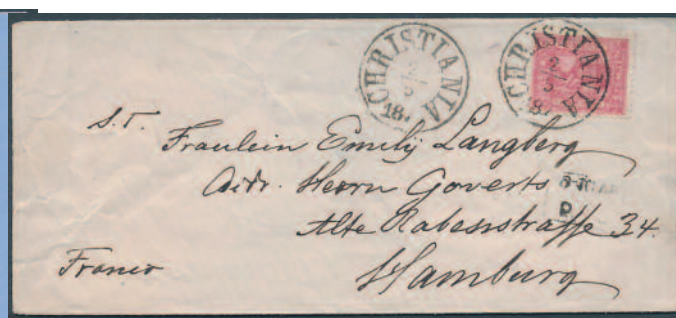 CHRISTIANIA
CHRISTIANIA
S. T.
Fraulein Emily Langberg
Adr. Herrn Goverts
Alte Rabenstraffe 34.
Franco
Hamburg